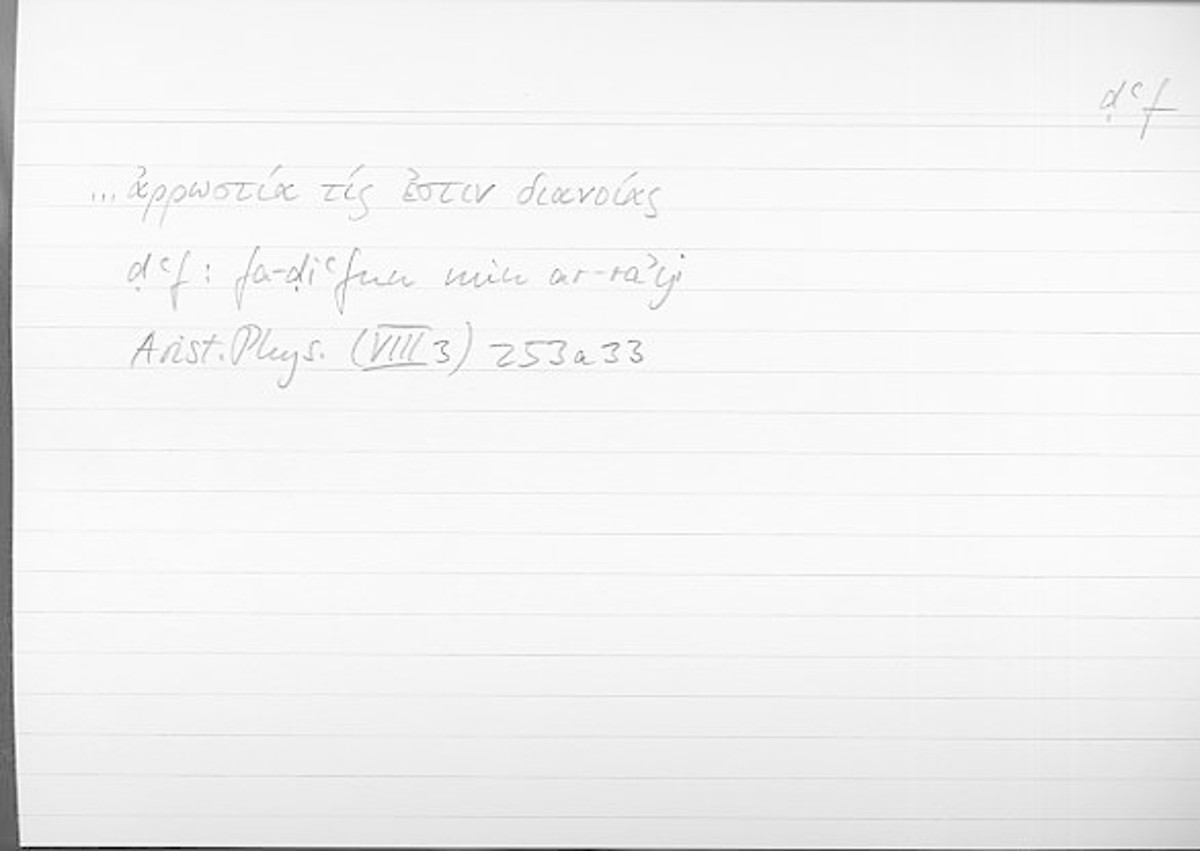 ḍʿf
... ἀρρωστία τίς ἐστιν διανοίας
ḍʿf : fa-ḍiʿfun min ar-raʾyi
Arist. Phys. (VIII 3) 253a33